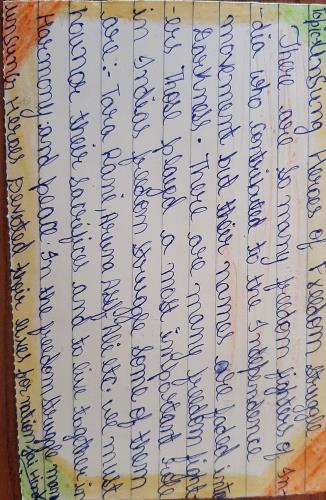 Topic:- Unsung Heroes of Freedom Struggle
There are so many freedom fighters of In
-dia who contributed to the Independence
movement but their names are faded into
Darkness. There are many freedom fight
-ers those played a most important role
in Indias freedom struggle some of them
are:- Tara Rani, Aruna Asif Ali etc. we must
honor their sacrifices and to live together in
Harmony and peace. In the freedom struggle many
unsung Heroes Devoted their lives for nation. Jai Hind